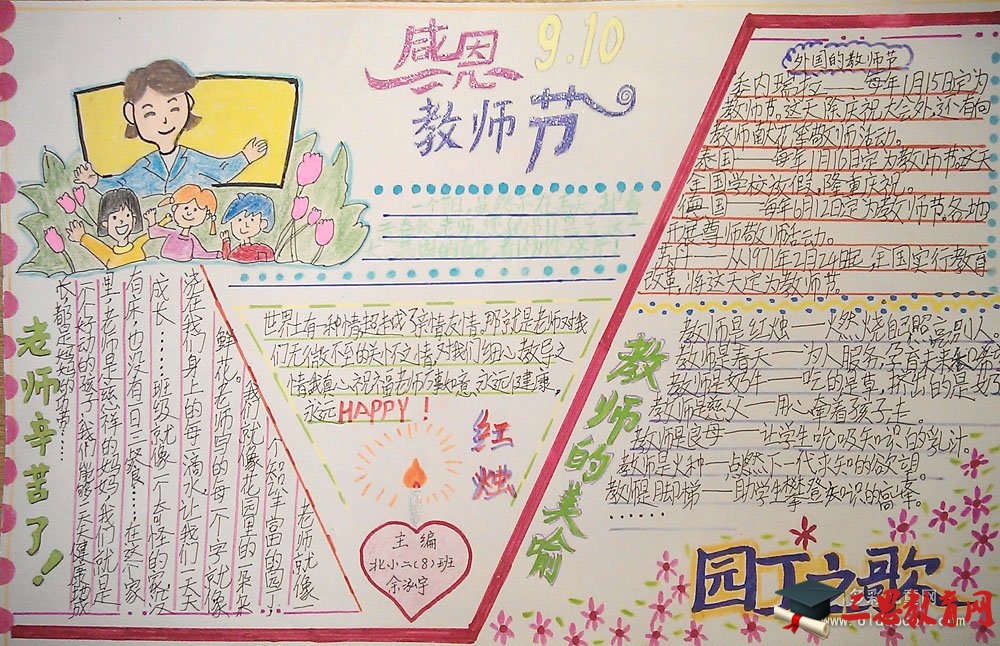 感恩
9.10
教师节
外国的教师节
委内瑞拉——每年1月15日定为
教师节。这天除庆祝大会外，还有向
教师献花等敬师活动。
泰国——每年1月16日定为教师节。这天
全国学校放假，隆重庆祝。
德国——每年6月12日定为教师节。各地
开展尊师敬师活动。
苏丹——从1971年2月24日起，全国实行教育
改革，将这天定为教师节。
世界上有一种情超越了亲情友情，那就是老师对我
们无微不至的关怀之情，对我们细心教导之
情。我真心祝福老师
永远健康，
永远HAPPY！
红烛
主编
北小二(8)班
余泓宇
老师辛苦了！
老师就像一
个知识丰富的园丁，
我们就像花园里的一朵朵
鲜花。老师写的每一个字就像
浇在我们身上的每一滴水，让我们一天天
成长……班级就像一个奇怪的家，没
有床，也没有一日三餐……在这个家
里，老师是慈祥的妈妈，我们就是
一个个好动的孩子，我们能够天天健康
教师的美喻
教师是红烛——燃烧自己照亮别人
教师是春天——为人服务，孕育未来和希
教师是奶牛——吃的是草，挤出的是奶
教师是慈父——用心牵着孩子走。
教师是良母——让学生吮吸知识的乳汁。
教师是火种——点燃下一代求知的欲望。
教师是脚梯——助学生攀登知识的高峰。
……
园丁之歌
三思教育网